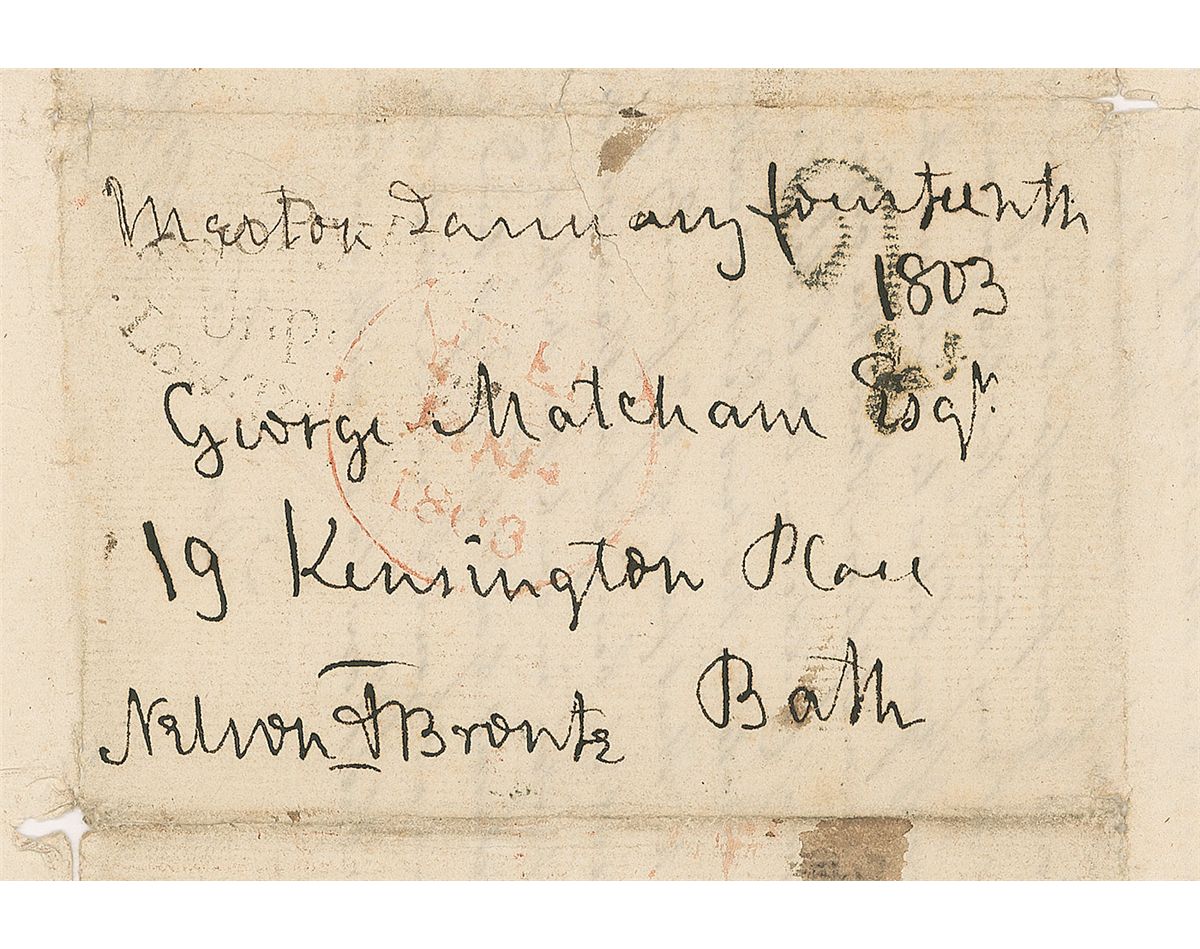 Merton January fourteenth
1803
Unp.
George Matcham Esqr.
JAN
1803
19 Kensington Place
Bath
Nelson & Bronte